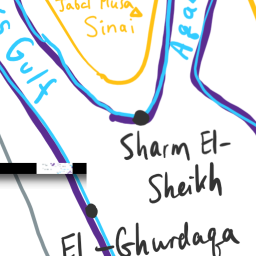 Jabel Musa
Sinai
s Gulf
Aqa
Sharm El-
Sheikh
El-Ghurdaqa